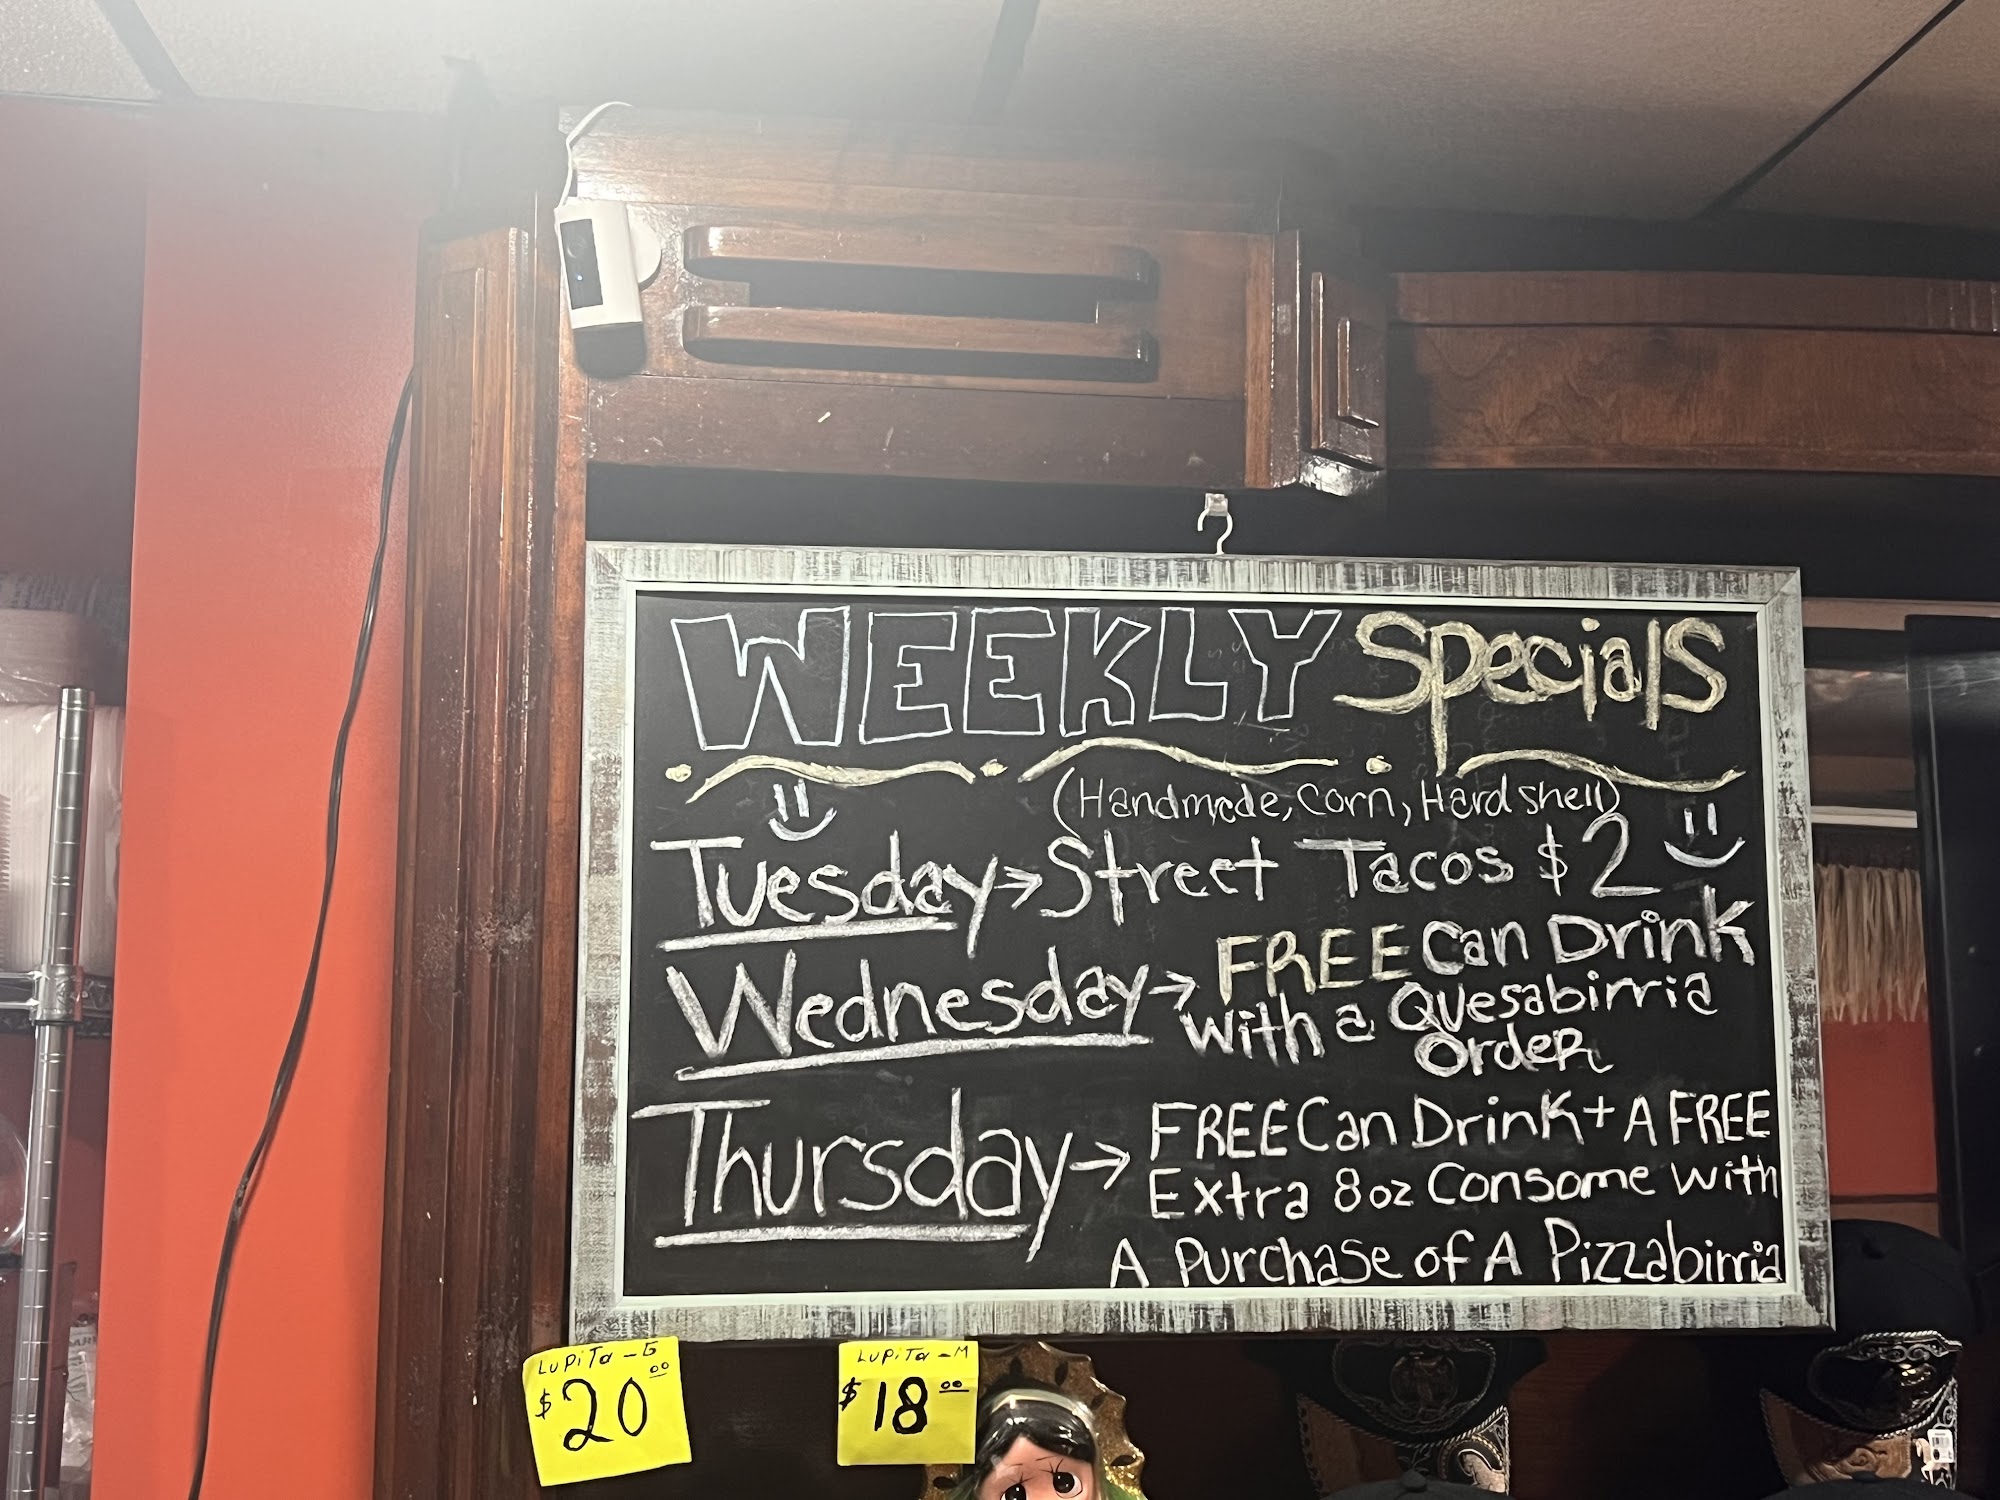 WEEKLY Specials
(Handmade, Corn, Hard shell)
Tuesday → Street Tacos $2
Wednesday → FREE Can Drink
With a Quesabirria
Order
Thursday → FREE Can Drink + A FREE
Extra 8oz Consome with
A Purchase of A Pizzabirria
LUPiTa - G
$20.00
LUPiTa - M
$18.00